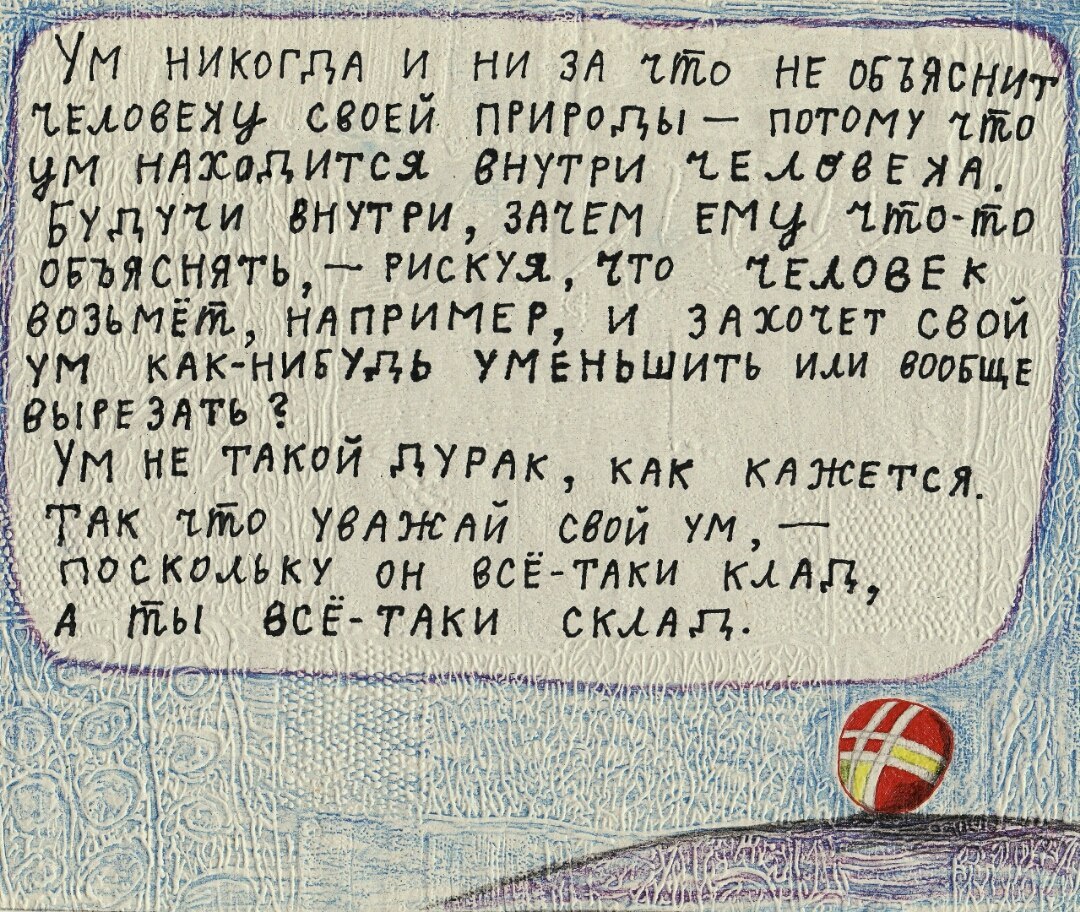 Ум никогда и ни за что не объяснит
человеку своей природы — потому что
ум находится внутри человека.
Будучи внутри, зачем ему что-то
объяснять, — рискуя, что человек
возьмёт, например, и захочет свой
ум как-нибудь уменьшить или вообще
вырезать?
Ум не такой дурак, как кажется.
Так что уважай свой ум, —
поскольку он всё-таки клад,
а ты всё-таки склад.